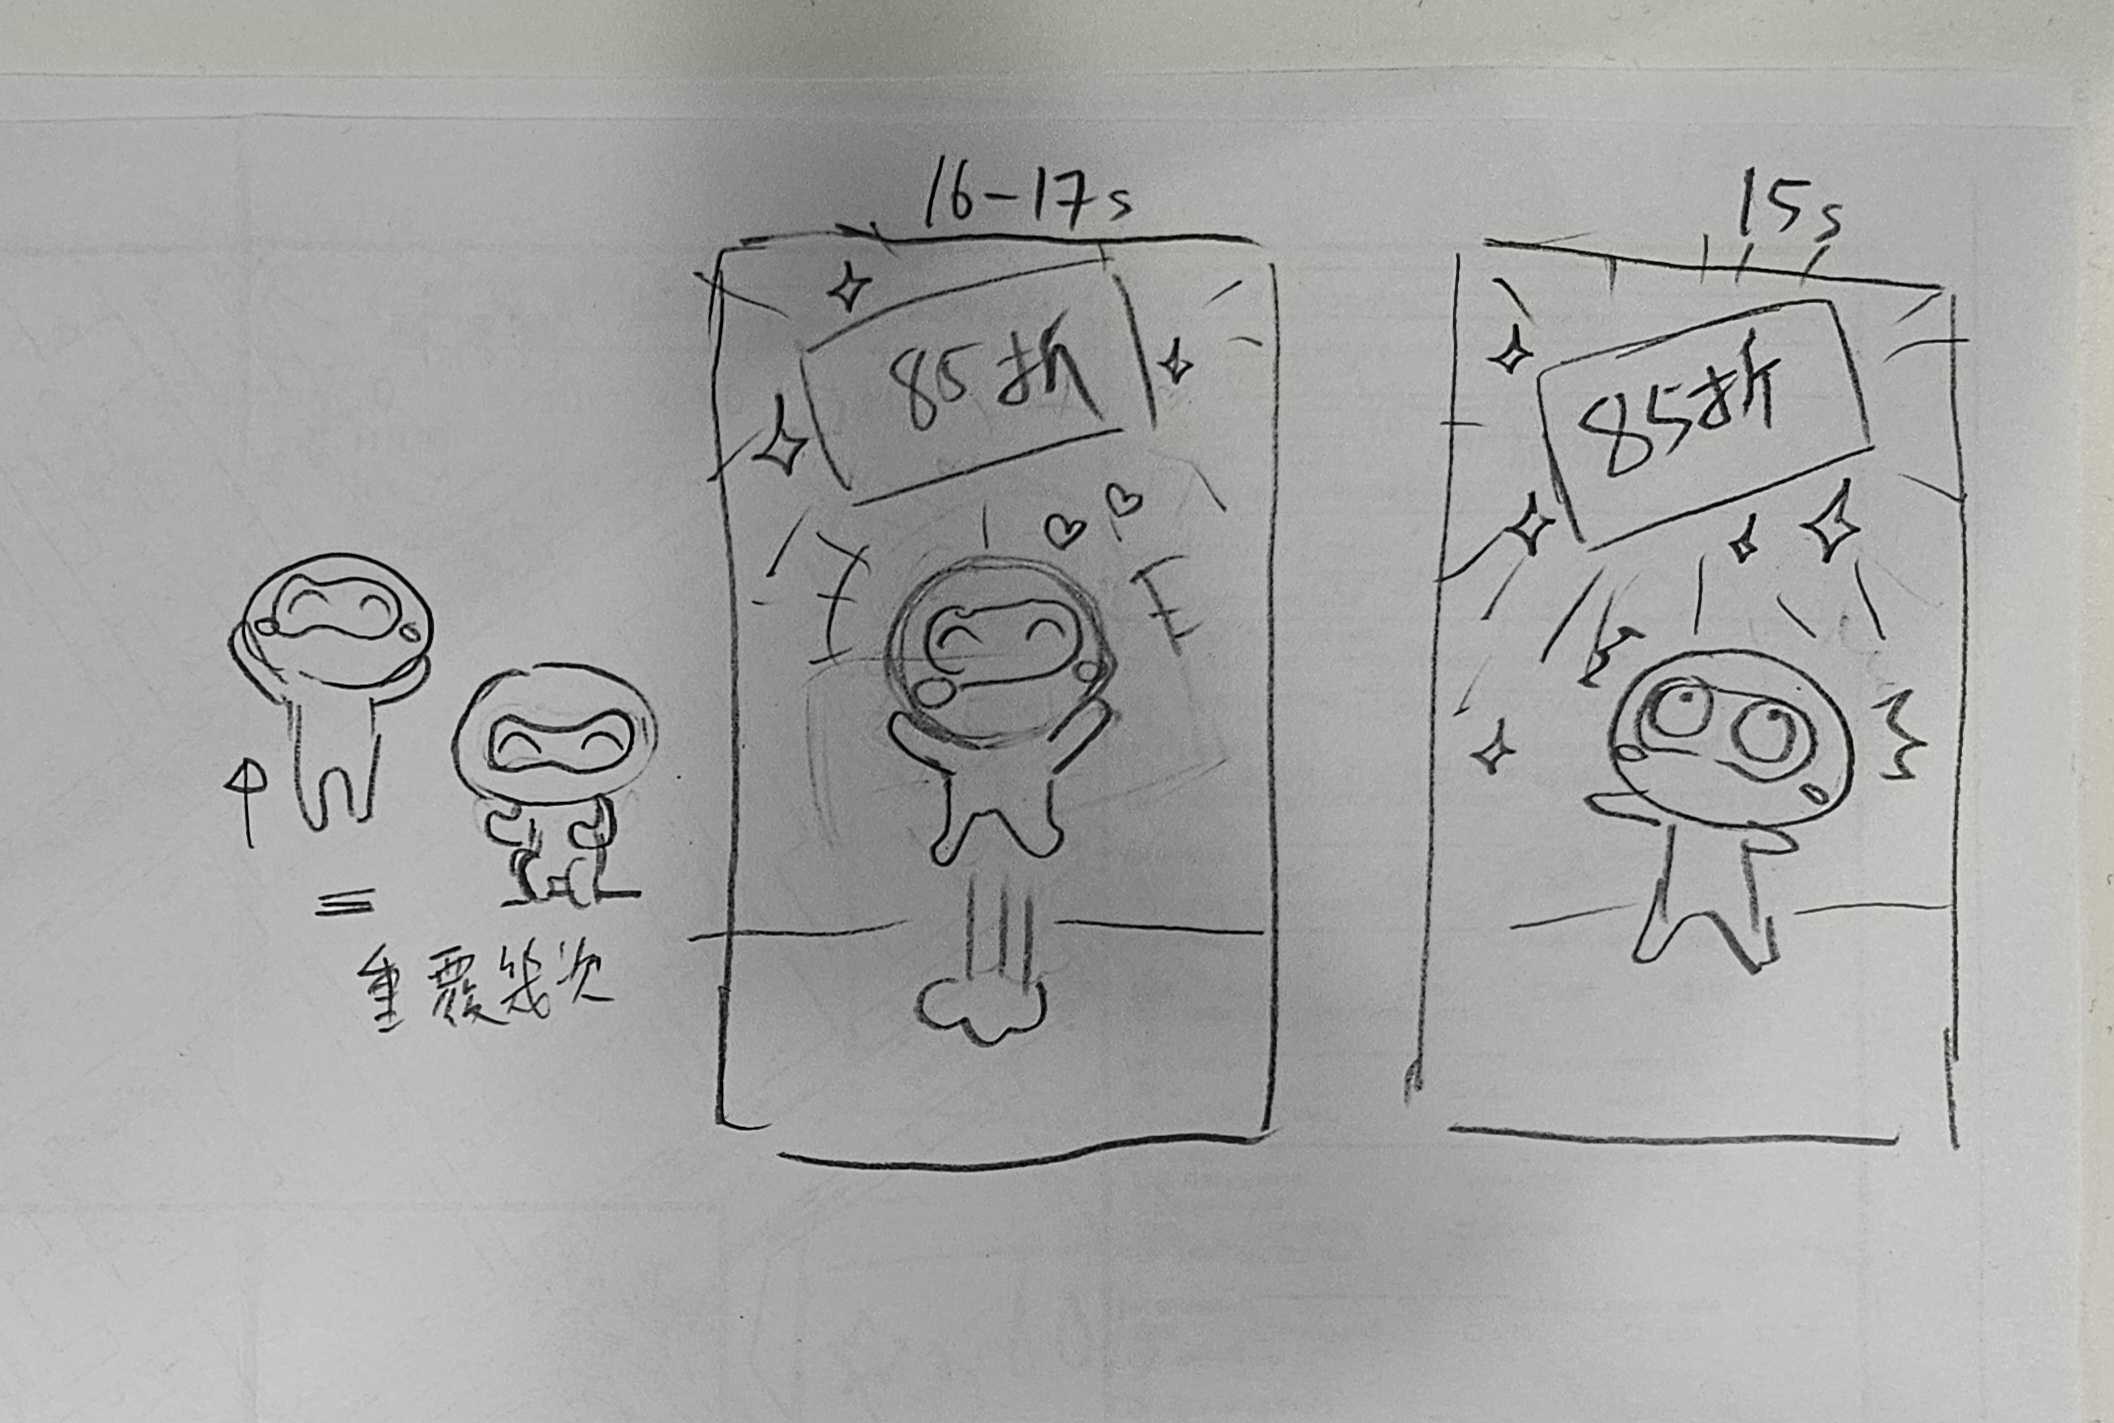 16-17s
85折
重覆幾次
15s
85折